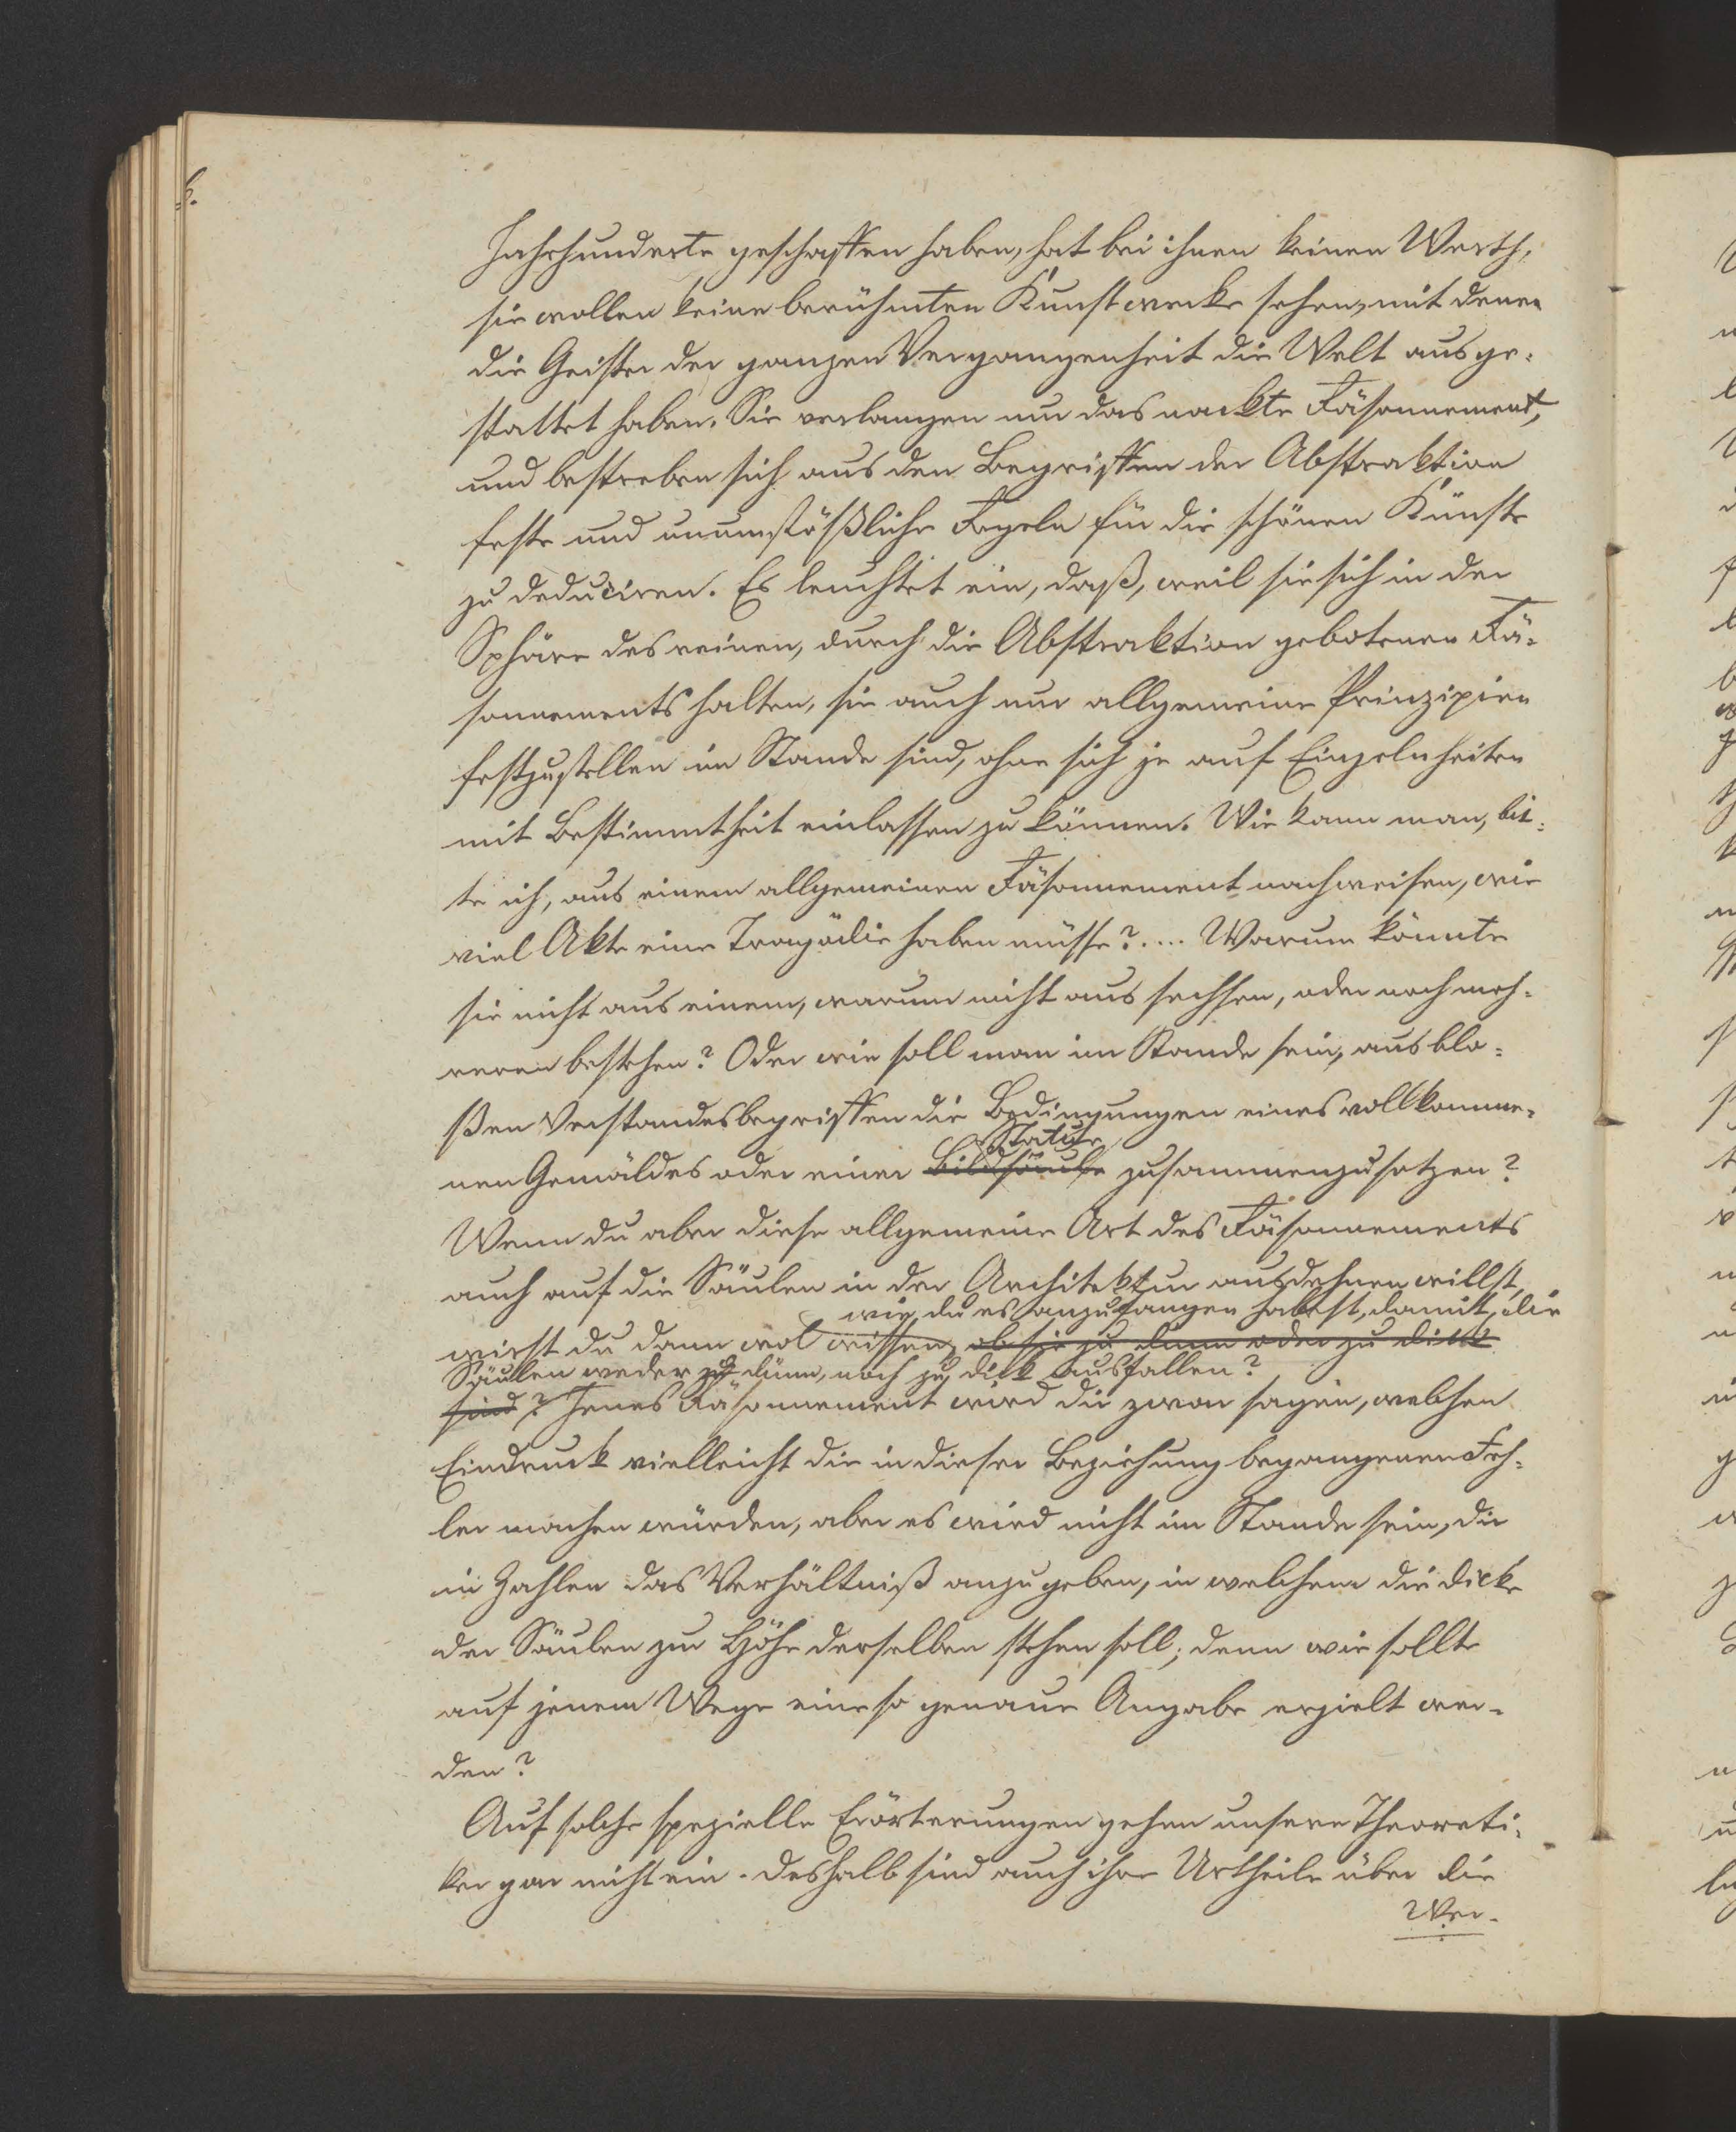 Jahrhunderte geschaffen haben, hat bei ihnen keinen Werth,
sie wollen keine berühmten Kunstwerke sehen, mit denen
die Geister der ganzen Vergangenheit die Welt ausge-
stattet haben. Sie verlangen nur das nackte Räsonnement,
und bestreben sich aus den Begriffen der Abstraktion
feste und unumstößliche Regeln für die schönen Künste
zu deduciren. Es leuchtet ein, daß, weil sie sich in der
Sphäre des reinen, durch die Abstraktion gebotenen Rä-
sonnements halten, sie auch nur allgemeine Prinzipien
festzustellen im Stande sind, ohne sich je auf Einzelnheiten
mit Bestimmtheit einlassen zu können. Wie kann man, bit-
te ich, aus einem allgemeinen Räsonnement nachweisen, wie
viel Akte eine Tragödie haben müsse?.... Warum könnte
sie nicht aus einem, warum nicht aus sechsen, oder noch meh-
reren bestehen? Oder wie soll man im Stande sein, aus blo-
ßen Verstandesbegriffen die Bedingungen eines vollkomme-
Statue
nen Gemäldes oder einer Bildsäule zusammenzusetzen?
Wenn du aber diese allgemeine Art des Räsonnements
auch auf die Säulen in der Architektur ausdehnen willst,
wie du es anzufangen habest, damit die
wirst du dann wol wissen, ob sie zu dünn oder zu dick
Säulen weder zu dünn, noch zu dick ausfallen?
sind? Jenes Räsonnement wird dir zwar sagen, welchen
Eindruck vielleicht die in dieser Beziehung begangenen Feh-
ler machen würden, aber es wird nicht im Stande sein, dir
in Zahlen das Verhältniß anzugeben, in welchem die Dicke
der Säulen zur Höhe derselben stehen soll; denn wie sollte
auf jenem Wege eine so genaue Angabe erzielt wer-
den?
Auf solche spezielle Erörterungen gehen unsere Theoreti-
ker gar nicht ein. Deshalb sind auch ihre Urtheile über die
Wer-